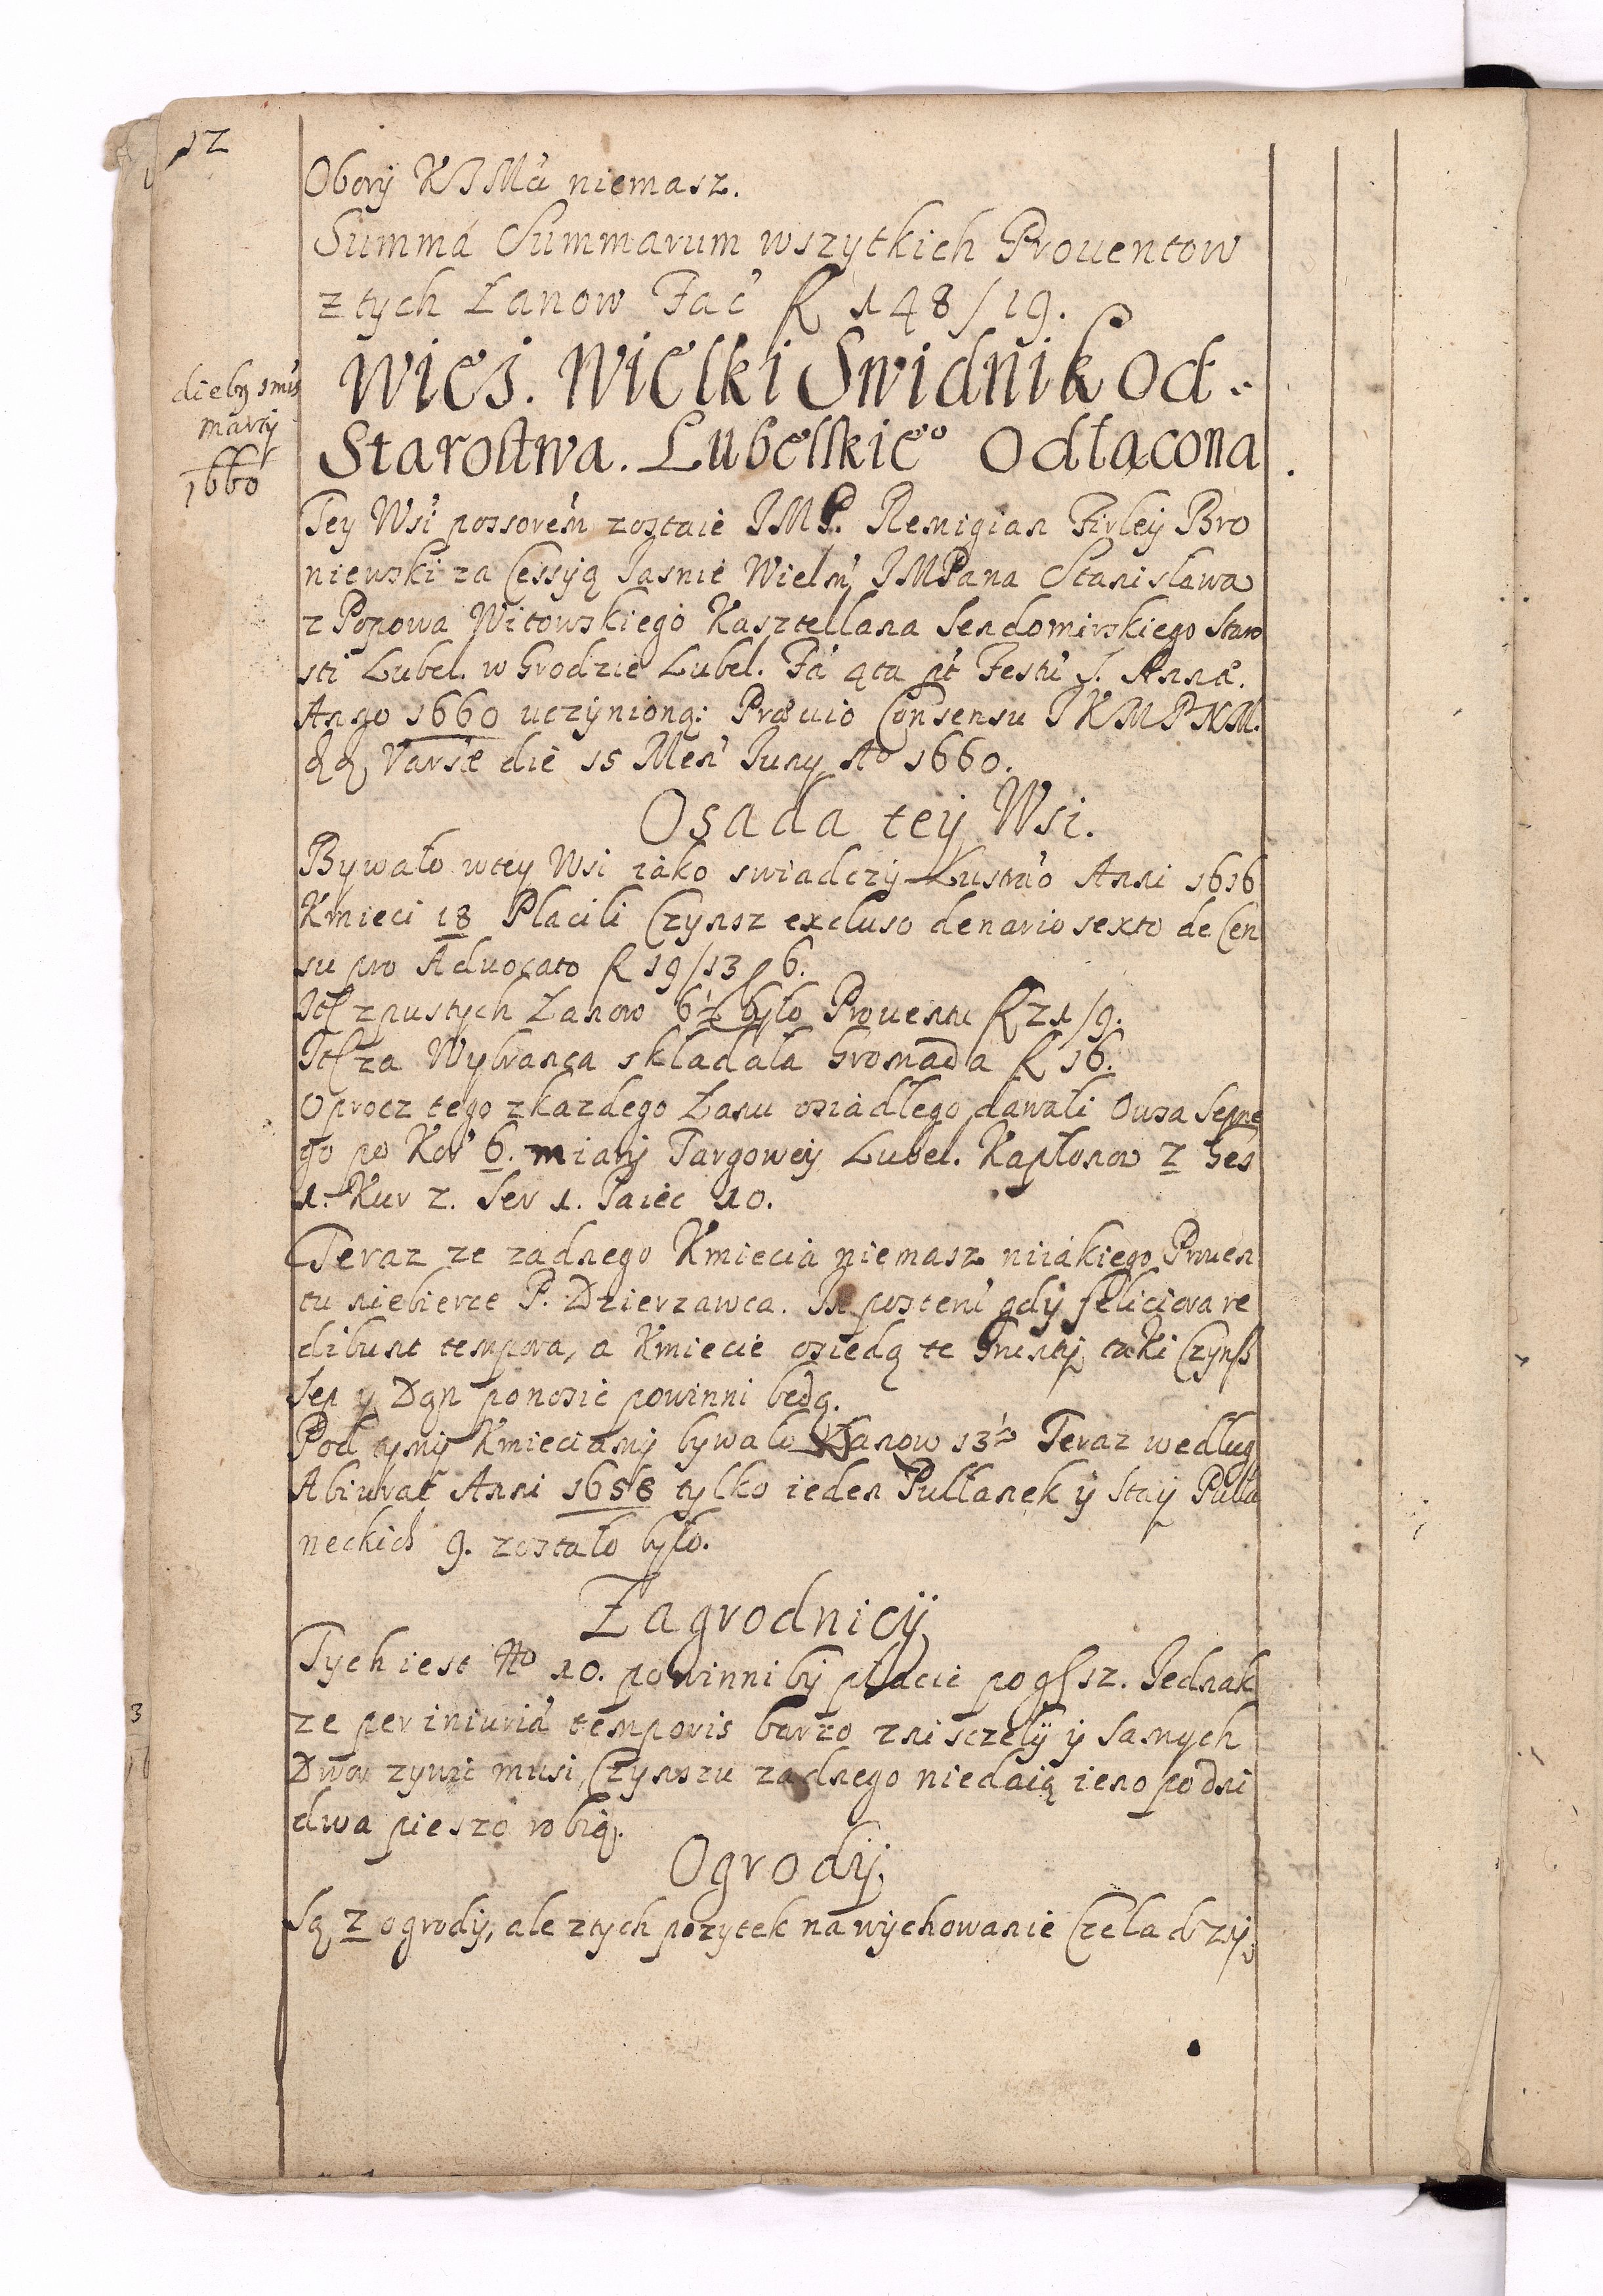 12
Obory KJMci niemasz.
Summá Summarum wszytkich Prouentow
z tych Łanow Fać fl 148/19.
Wieś. Wielki Swidnik Od
Starostwa. Lubelskie° Odłączona
marty
1660
Tey Wsi possorem zostaie JMP. Remigian Firley Bro
niewski za Cessyą Jasnie Wielm JMPana Stanisława
z Popowa Witowskiego Kasztellana Sendomirskiego Staro
sti Lubel. w Grodzie Lubel. Fá 4ta pt Festu S. Annæ.
Anno 1660 uczynioną: Præuio Consensu JKMPNM.
Varsæ die 15 Men Juny A° 1660.
Osada tey Wsi.
Bywało wtey Wsi iako swiadczy Lustrio Anni 1616
Kmieci 18 Placili Czynsz excluso denario sexto de Cen
su pro Advocato fl 19/13/6.
It zpustych Łanow 6½ było Prouentu fl 21/9.
It za Wybranca składała Gromada fl 16.
Oprocz tego zkazdego Łanu osiadłego dawali Owsa Sepne
go po Kor 6. miary Targowey Lubel. Kapłonow 2 Gęs
1. Kur 2. Ser 1. Jaiec 10.
Teraz ze zadnego Kmiecia niemasz niiakiego Prouen
tu niebierze P. Dzierzawca. In posterū gdy feliciora re
dibunt tempora, a Kmiecie osiedą te Grunty, taki Czynsz
Sep y Dan ponosic powinni będą.
Pod tymy Kmieciamy bywało Łanow 13½ Teraz według
Abiurat Anni 1658 tylko ieden Pułłanek y Stay Pułła
neckich 9. zostało było.
Zagrodnicy
Tych iest N° 10. powinni by płacic po gr 12. Jednak
ze per iniuriā temporis barzo zniszczely y samych
Dwor zywic musi, Czynszu zadnego niedaią ieno po dni
dwa pieszo robią.
Ogrody.
Są 2 ogrody, ale ztych pozytek na wychowanie Czeladzy.